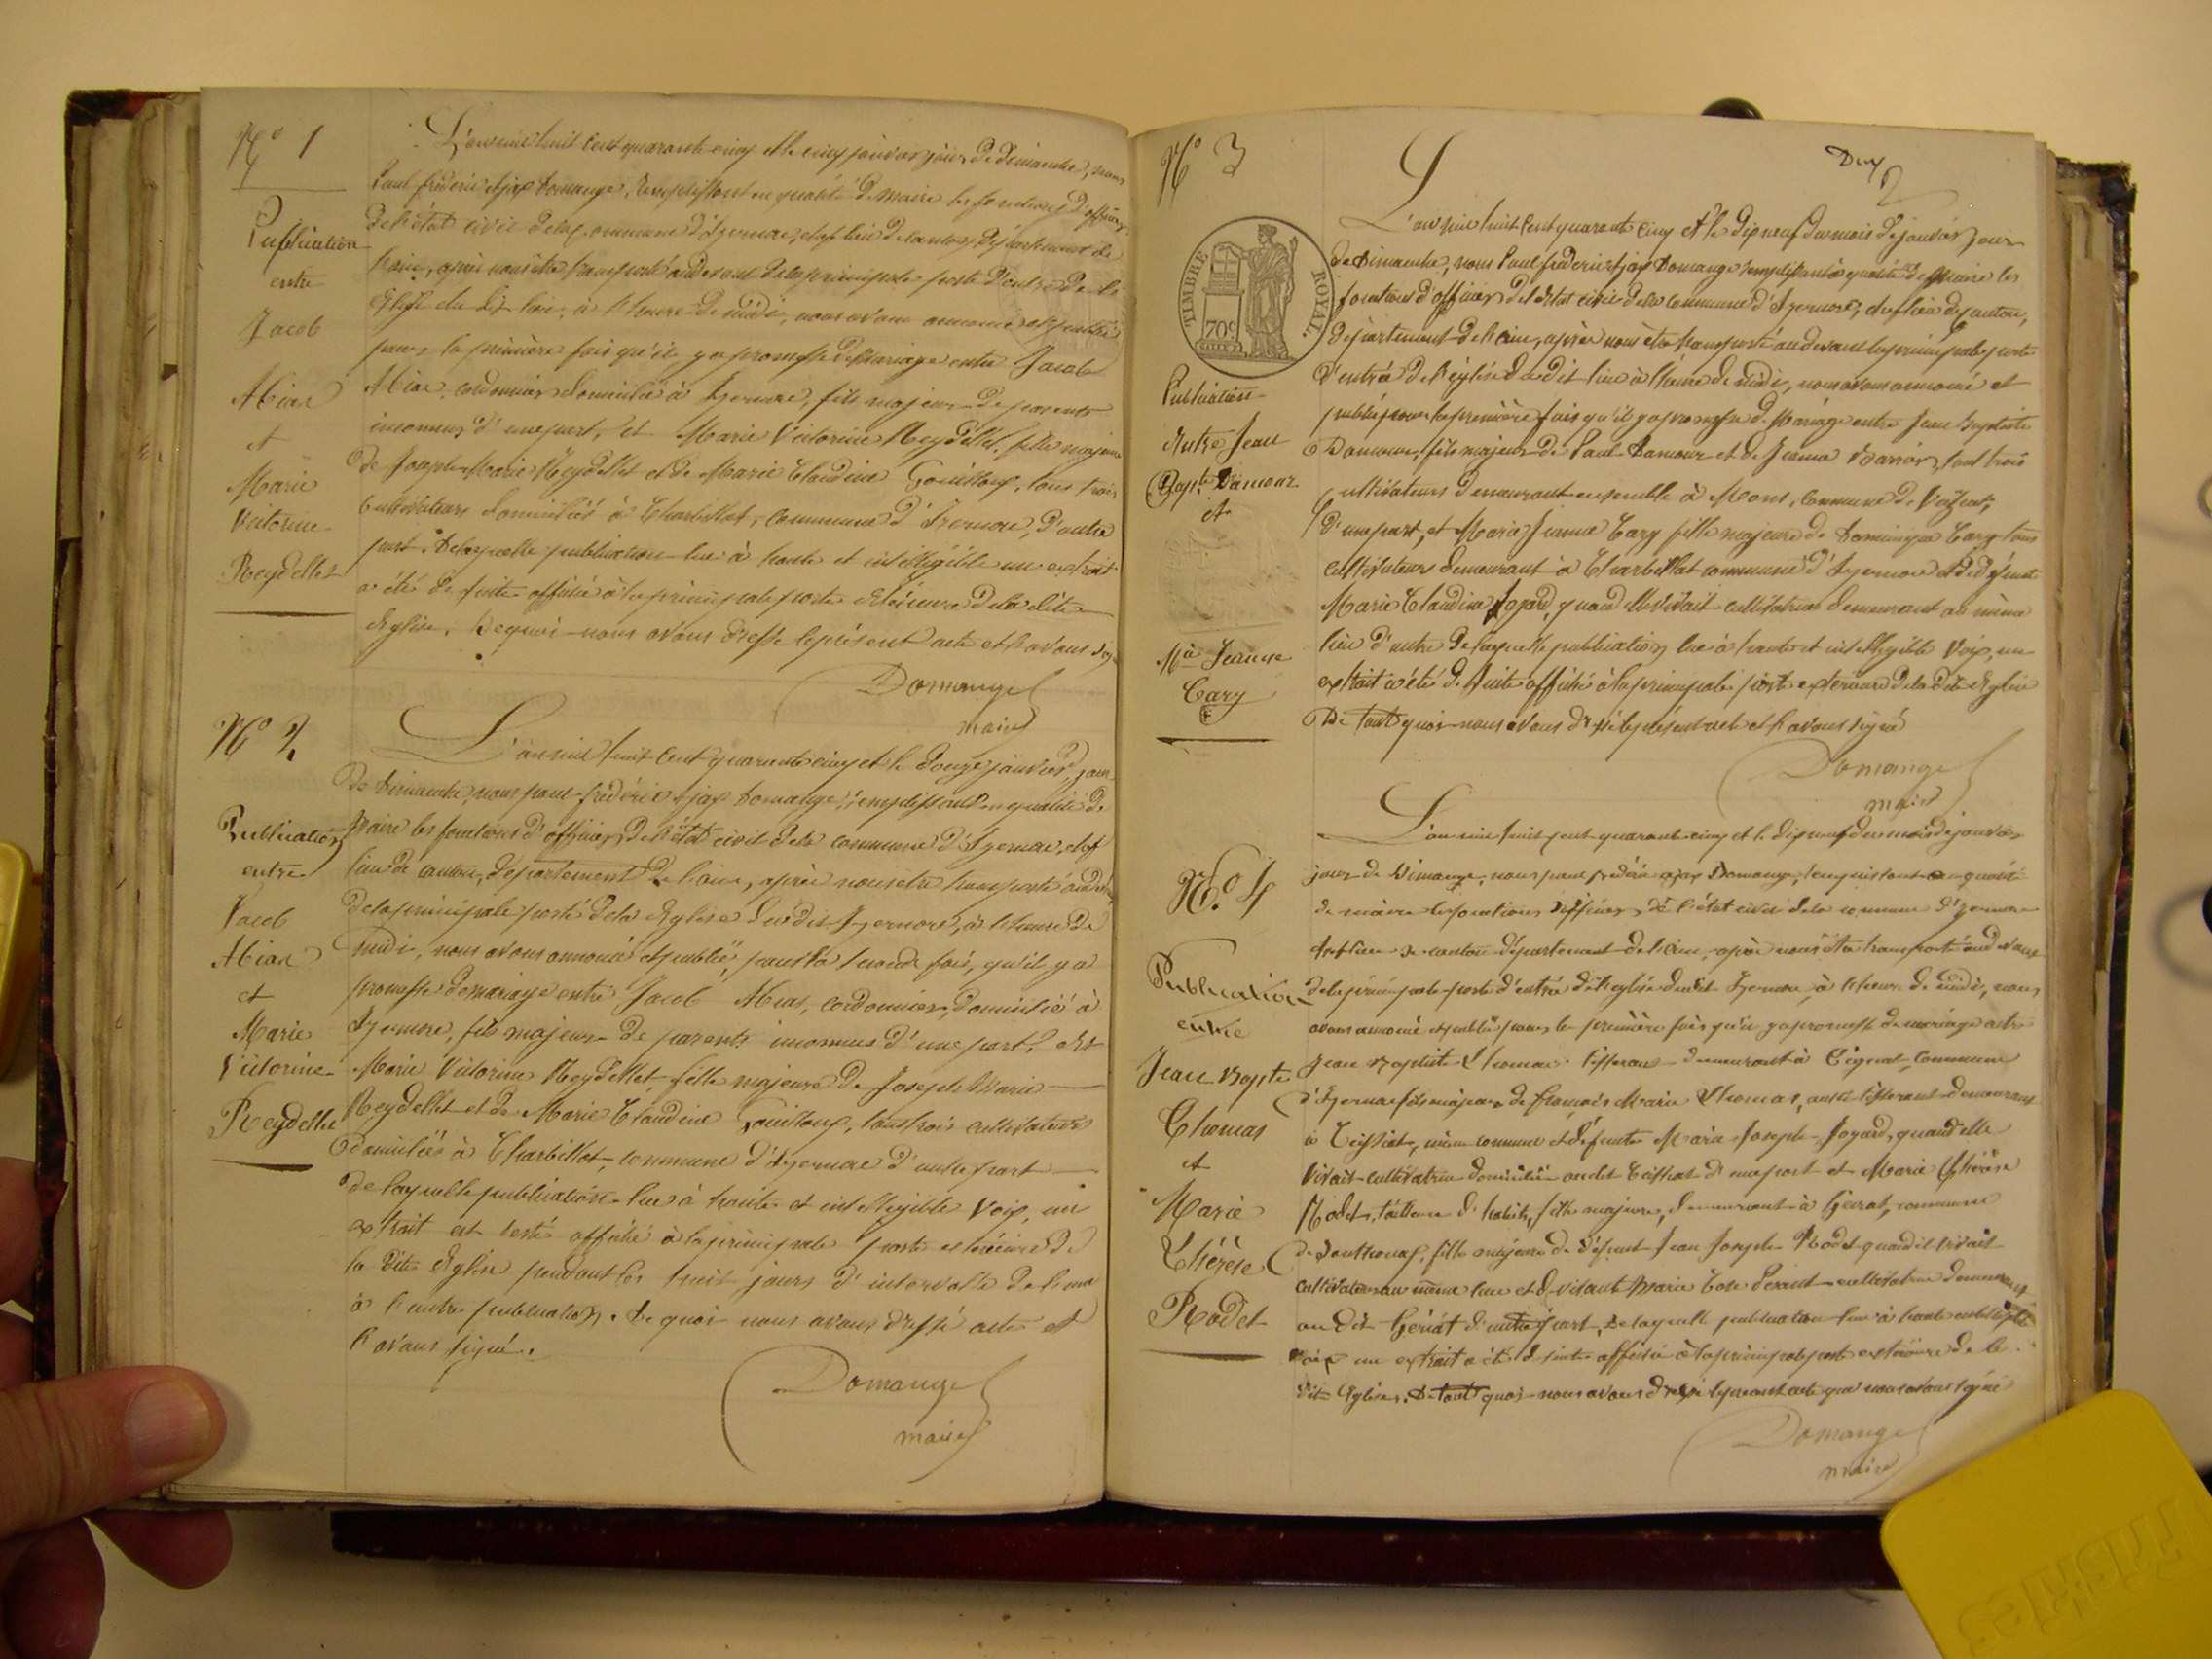 N° 1
Publication
entre
Jacob
Mias
et
Marie
Victorine
Reydellet
L'an mil huit cent quarante cinq et le cinq janvier jour de dimanche, nous
Paul frédéric ajax Domange, remplissant en qualité de maire les fonctions d'officier
de l'état civil de la commune d'Izernore, chef lieu de canton, département de
l'ain, après nous être transporté audevant de la principale porte d'entrée de l'é
Eglise du dit lieu, à l'heure de midi, nous avons annoncé et publié
pour la première fois qu'il y a promesse de Mariage entre Jacob
Mias, cordonnier domicilié à Izernore, fils majeur de parents
inconnus d'une part, et Marie Victorine Reydellet, fille majeure
de Joseph Marie Reydellet et de Marie Claudine Gouilloux, tous trois
cultivateurs domiciliés à Charbillat, commune d'Izernore, d'autre
part. De laquelle publication lue à haute et intelligible un extrait
a été de suite affiché à la principale porte extérieure de la dite
Eglise. De quoi nous avons dressé le présent acte et l'avons
Domange
maire
N° 2
Publication
entre
Jacob
Mias
et
Marie
Victorine
Reydellet
L'an mil huit cent quarante cinq et le douze janvier, jour
de dimanche, nous paul frédéric ajax Domange, remplissant en qualité de
Maire les fonctions d'officier de l'état civil de la commune d'Izernore, chef
lieu de canton, département de l'ain, après nous être transporté audevant
de la principale porte de la Eglise du dit Izernore, à l'heure de
midi, nous avons annoncé et publié, pour la seconde fois, qu'il y a
promesse de mariage entre Jacob Mias, cordonnier, domicilié à
Izernore, fils majeur de parents inconnus d'une part. Et
Marie Victorine Reydellet, fille majeure de Joseph Marie
Reydellet et de Marie Claudine Gouilloux, tous trois cultivateurs
domiciliés à Charbillat, commune d'Izernore d'autre part
de laquelle publication lue à haute et intelligible voix, un
extrait est resté affiché à la principale porte extérieure de
la dite Eglise pendant les huit jours d'intervalle de l'une
à l'autre publication. De quoi nous avons dressé acte et
l'avons signé.
Domange
maire
Deux
N° 3
TIMBRE ROYAL
70c
Publication
Entre Jean
Bapte Damour
et
Mie Jeanne
Cary
L'an mil huit cent quarante cinq et le dix neuf du mois de janvier jour
de Dimanche, nous Paul frédéric ajax Domange remplissant en qualité de Maire les
fonctions d'officier de l'état civil de la commune d'Izernore, chef lieu de canton,
département de l'ain, après nous être transporté audevant la principale porte
d'entrée de l'église du dit lieu à l'heure de midi, nous avons annoncé et
publié pour la première fois qu'il y a promesse de Mariage entre Jean Baptiste
Damour, fils majeur de Paul Damour et de Jeanne tous trois
cultivateurs demeurant ensemble à Mons, commune de
d'une part, et Marie Jeanne Cary fille majeure de Dominique Cary tous
cultivateurs demeurant à Charbillat commune d'Izernore et de défunte
Marie Claudine Jogard, quand elle vivait cultivatrice demeurant au même
lieu d'autre de laquelle publication lue à haute et intelligible voix, un
extrait a été de suite affiché à la principale porte extérieure de la dite Eglise
De tout quoi nous avons dressé le présent acte et l'avons signé
Domange
maire
N° 4
Publication
entre
Jean Bapte
Thomas
et
Marie
Thérèse
Rodet
L'an mil huit cent quarante cinq et le dix neuf du mois de janvier
jour de Dimange, nous paul frédéric ajax Domange, remplissant en qualité
de maire les fonctions d'officier de l'état civil de la commune d'Izernore
chef lieu de canton département de l'ain, après nous être transporté audevant
de la principale porte d'entrée de l'eglise dudit Izernore, à l'heure de midi, nous
avons annoncé et publié pour la première fois qu'il y a promesse de mariage entre
Jean Baptiste Thomas tisserand demeurant à Ceignat, commune
d'Izernore fils majeur de françois Marie Thomas, aussi tisserand demeurant
à Ceissiat, même commune et défunte Marie Joseph Jogard, quand elle
vivait cultivatrice domiciliée audit Ceissiat d'une part et Marie Thérèse
Rodet, tailleuse d'habits, fille majeure, demeurant à Gériat, commune
de Sonthonax, fille majeure de défunt Jean Joseph Rodet quand il vivait
cultivateur au même lieu et de vivante Marie cultivatrice demeurant
au dit Gériat d'autre part, De laquelle publication lue à haute intelligible
voix un extrait a été de suite affiché à la principale porte extérieure de la
dite Eglise. De tout quoi nous avons dressé le présent acte que nous avons signé
Domange
maire